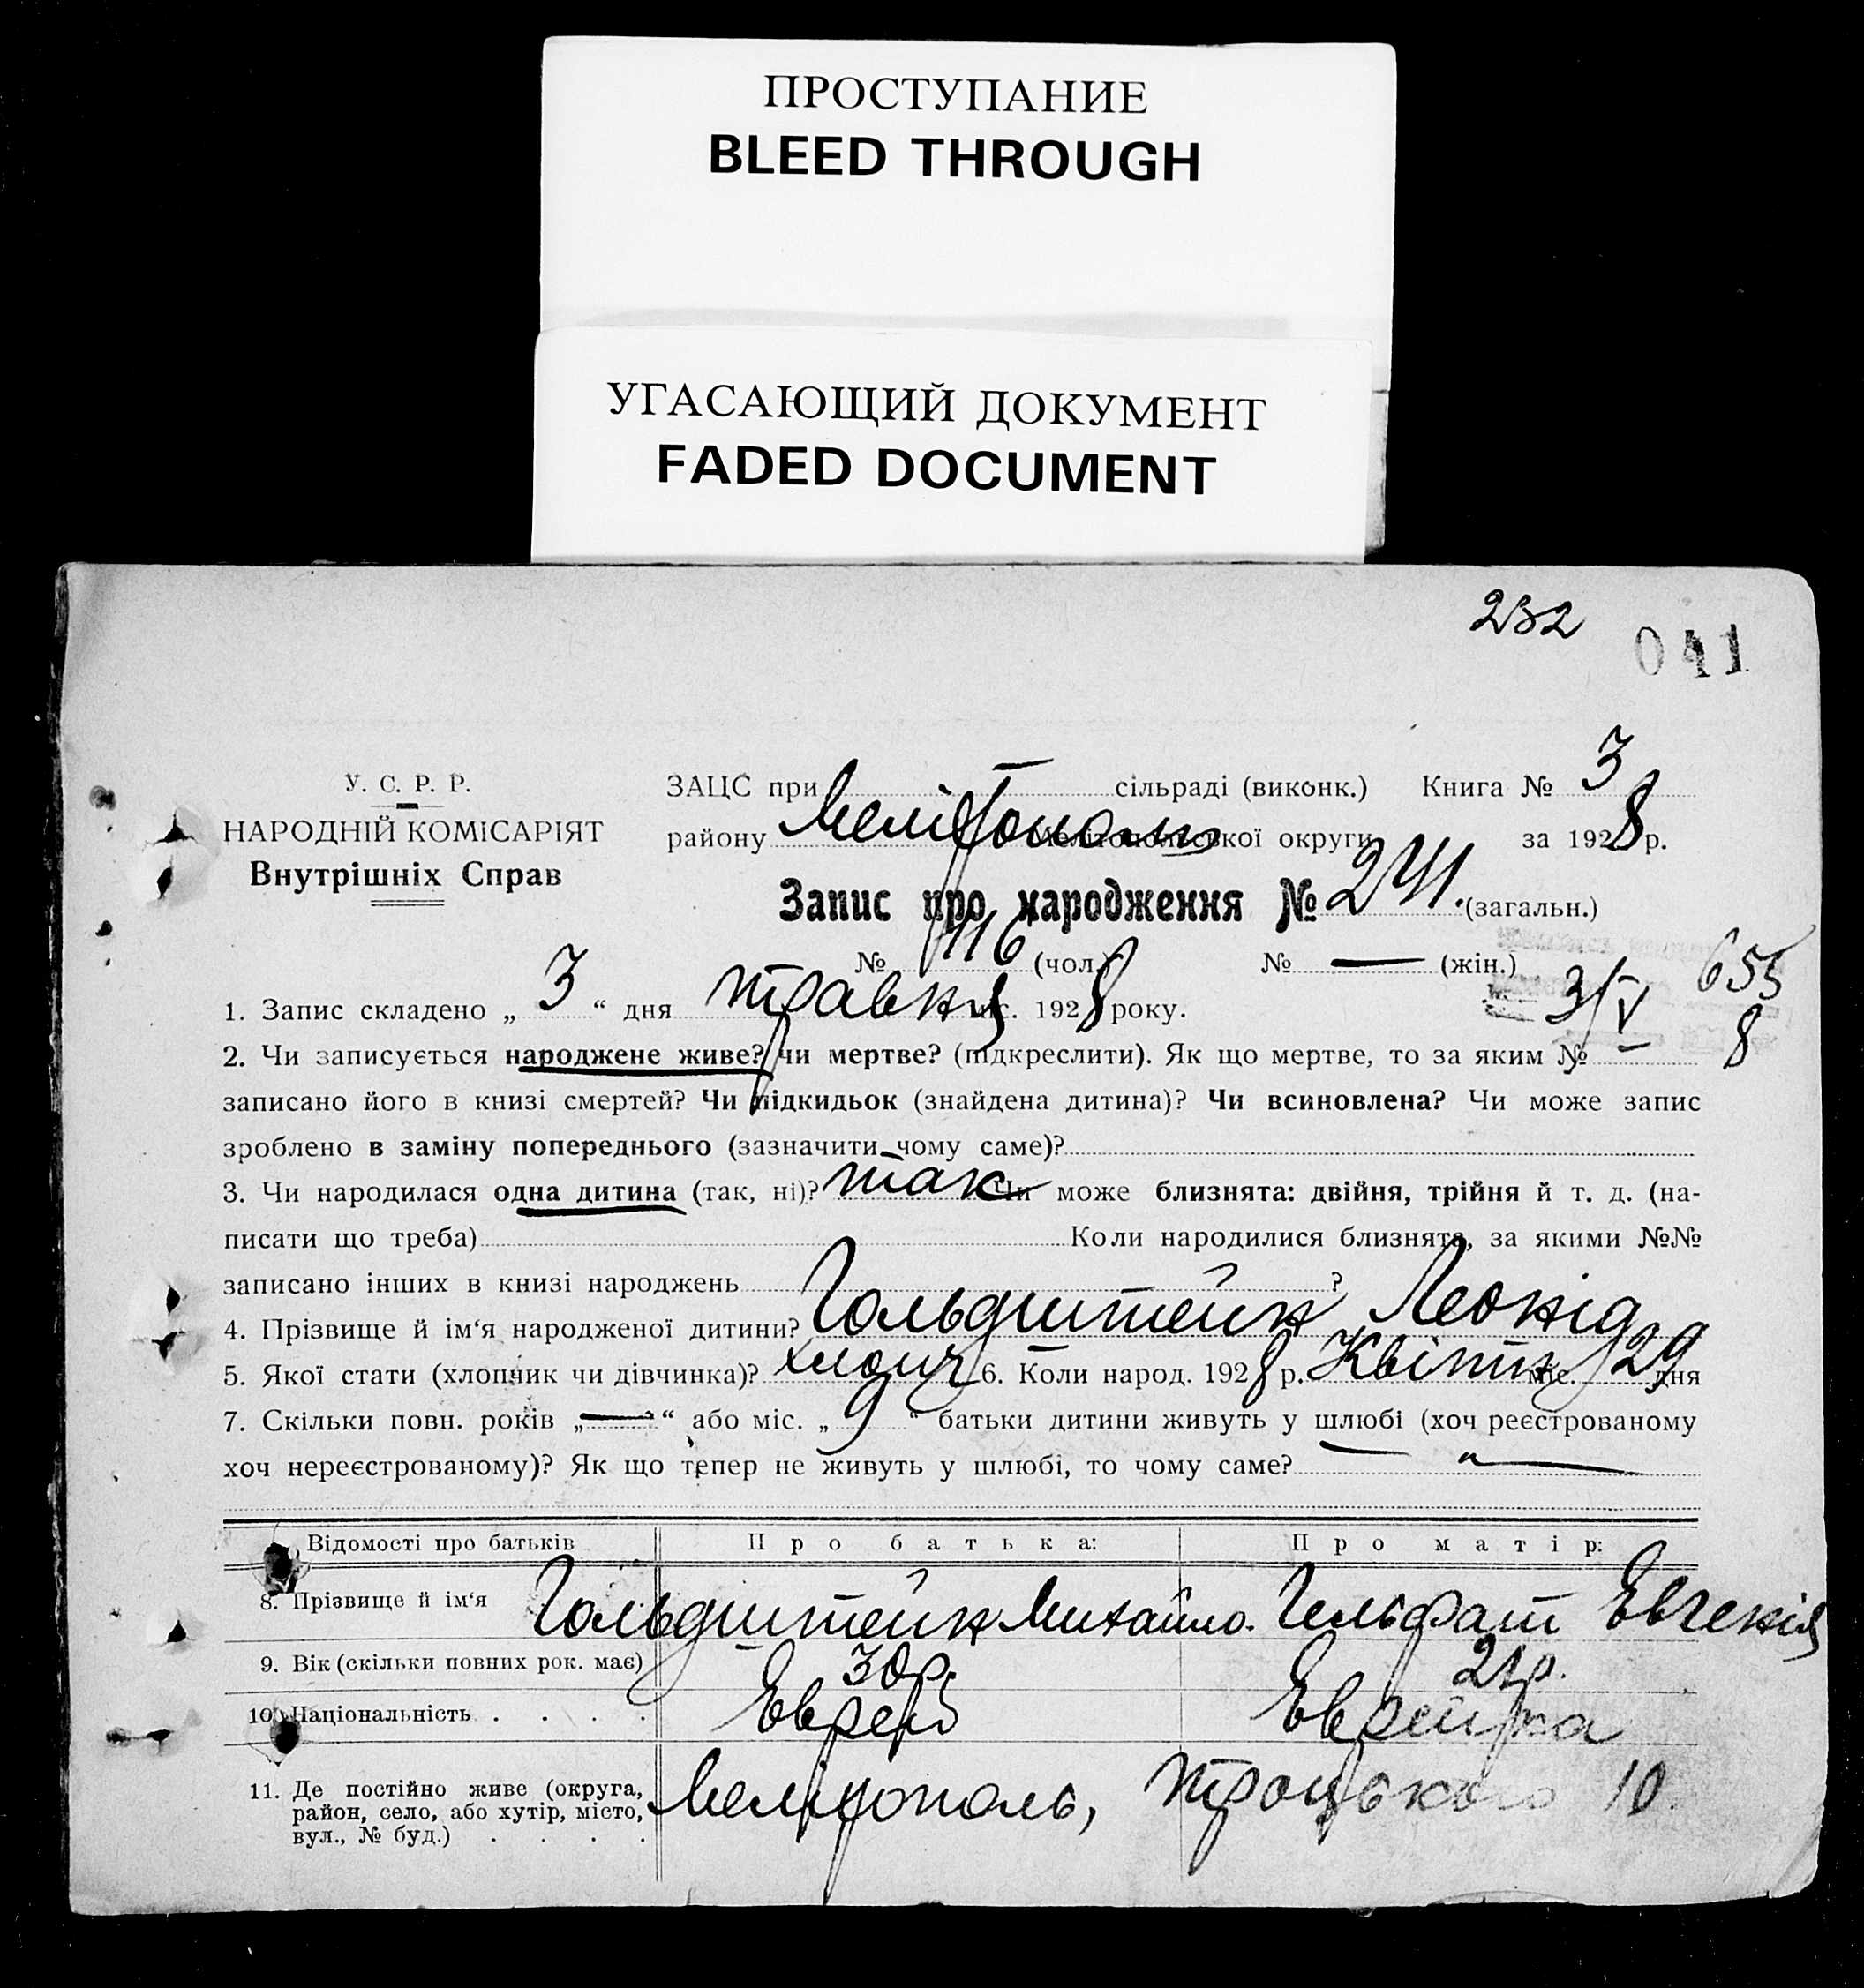 ПРОСТУПАНИЕ
BLEED THROUGH
УГАСАЮЩИЙ ДОКУМЕНТ
FADED DOCUMENT
232
041
У. С. Р. Р.
НАРОДНІЙ КОМІСАРІЯТ
Внутрішніх Справ
ЗАЦС при сільраді (виконк.) Книга № 3
району Мелітополь Мелітопольської округи за 1928 р.
Запис про народження № 241. (загальн.)
№ 116 (чол.) № — (жін.)
655
3/V
8
1. Запис складено „ 3 “ дня травня міс. 1928 року.
2. Чи записується народжене живе? чи мертве? (підкреслити). Як що мертве, то за яким № —
записано його в книзі смертей? Чи підкидьок (знайдена дитина)? Чи всиновлена? Чи може запис
зроблено в заміну попереднього (зазначити чому саме)?
3. Чи народилася одна дитина (так, ні)? так Чи може близнята: двійня, трійня й т. д. (на-
писати що треба) Коли народилися близнята, за якими №№
записано інших в книзі народжень ?
4. Прізвище й ім'я народженої дитини? Гольдштейн Леонід
5. Якої стати (хлопчик чи дівчинка)? хлопч 6. Коли народ. 1928 р. Квітня міс. 29 дня
7. Скільки повн. років „ — “ або міс. „ 9 “ батьки дитини живуть у шлюбі (хоч реєстрованому
хоч нереєстрованому)? Як що тепер не живуть у шлюбі, то чому саме?
Відомості про батьків Про батька: Про матір:
8. Прізвище й ім‘я Гольдштейн Михайло. Гельфат Евгенія
9. Вік (скільки повних рок. має) 30 р. 21 р.
10. Національність . . . . Еврей Еврейка
11. Де постійно живе (округа,
район, село, або хутір, місто,
вул., № буд.) . . . . Мелітополь, Троцького 10.